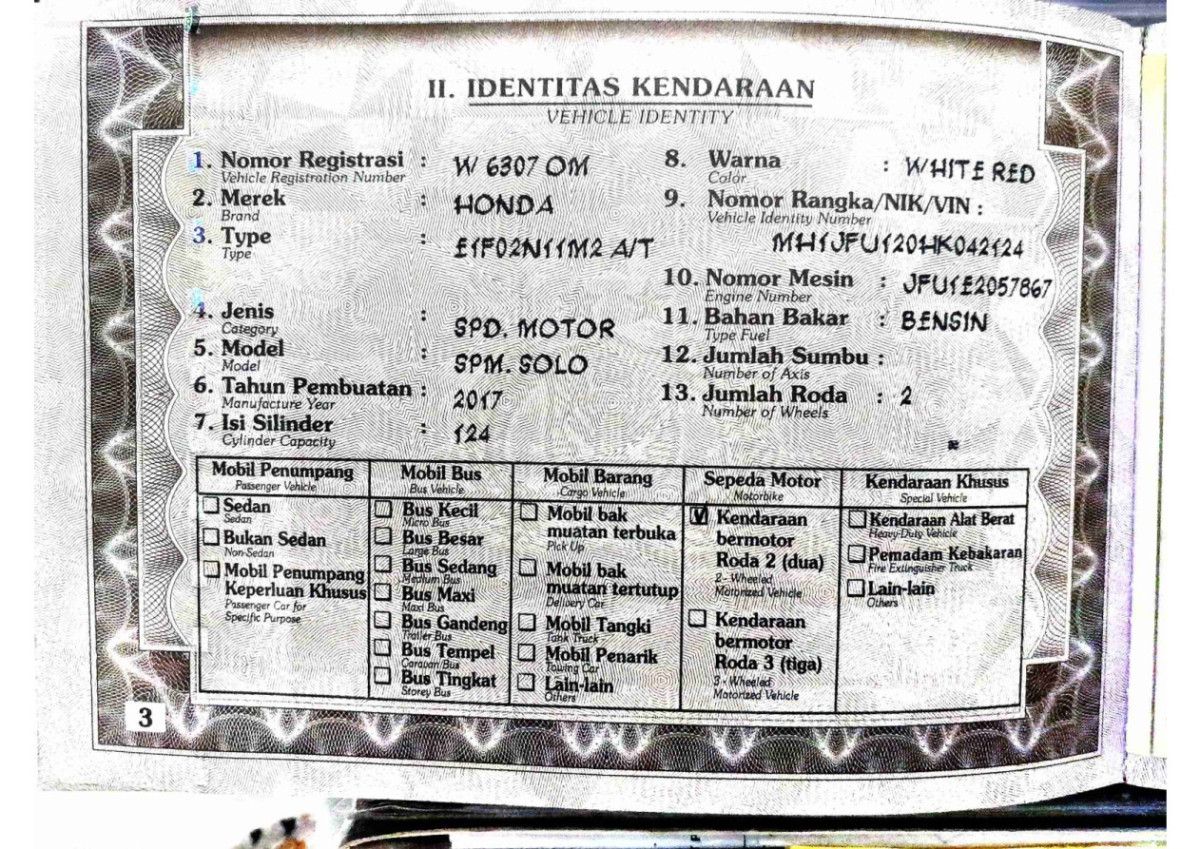 II. IDENTITAS KENDARAAN
VEHICLE IDENTITY
1. Nomor Registrasi : W 6307 OM
Vehicle Registration Number
2. Merek : HONDA
Brand
3. Type : E1F02N11M2 A/T
Type
4. Jenis : SPD. MOTOR
Category
5. Model : SPM. SOLO
Model
6. Tahun Pembuatan : 2017
Manufacture Year
7. Isi Silinder : 124
Cylinder Capacity
8. Warna : WHITE RED
Color
9. Nomor Rangka/NIK/VIN :
Vehicle Identity Number
MH1JFU120HK042124
10. Nomor Mesin : JFU1E2057867
Engine Number
11. Bahan Bakar : BENSIN
Type Fuel
12. Jumlah Sumbu :
Number of Axis
13. Jumlah Roda : 2
Number of Wheels
Mobil Penumpang
Passenger Vehicle
Sedan
Sedan
Bukan Sedan
Non-Sedan
Mobil Penumpang
Keperluan Khusus
Passenger Car for
Specific Purpose
Mobil Bus
Bus Vehicle
Bus Kecil
Micro Bus
Bus Besar
Large Bus
Bus Sedang
Medium Bus
Bus Maxi
Maxi Bus
Bus Gandeng
Trailer Bus
Bus Tempel
Caravan Bus
Bus Tingkat
Storey Bus
Mobil Barang
Cargo Vehicle
Mobil bak
muatan terbuka
Pick Up
Mobil bak
muatan tertutup
Delivery Car
Mobil Tangki
Tank Truck
Mobil Penarik
Towing Car
Lain-lain
Others
Sepeda Motor
Motorbike
Kendaraan
bermotor
Roda 2 (dua)
2 - Wheeled
Motorized Vehicle
Kendaraan
bermotor
Roda 3 (tiga)
3 - Wheeled
Motorized Vehicle
Kendaraan Khusus
Special Vehicle
Kendaraan Alat Berat
Heavy-Duty Vehicle
Pemadam Kebakaran
Fire Extinguisher Truck
Lain-lain
Others
3